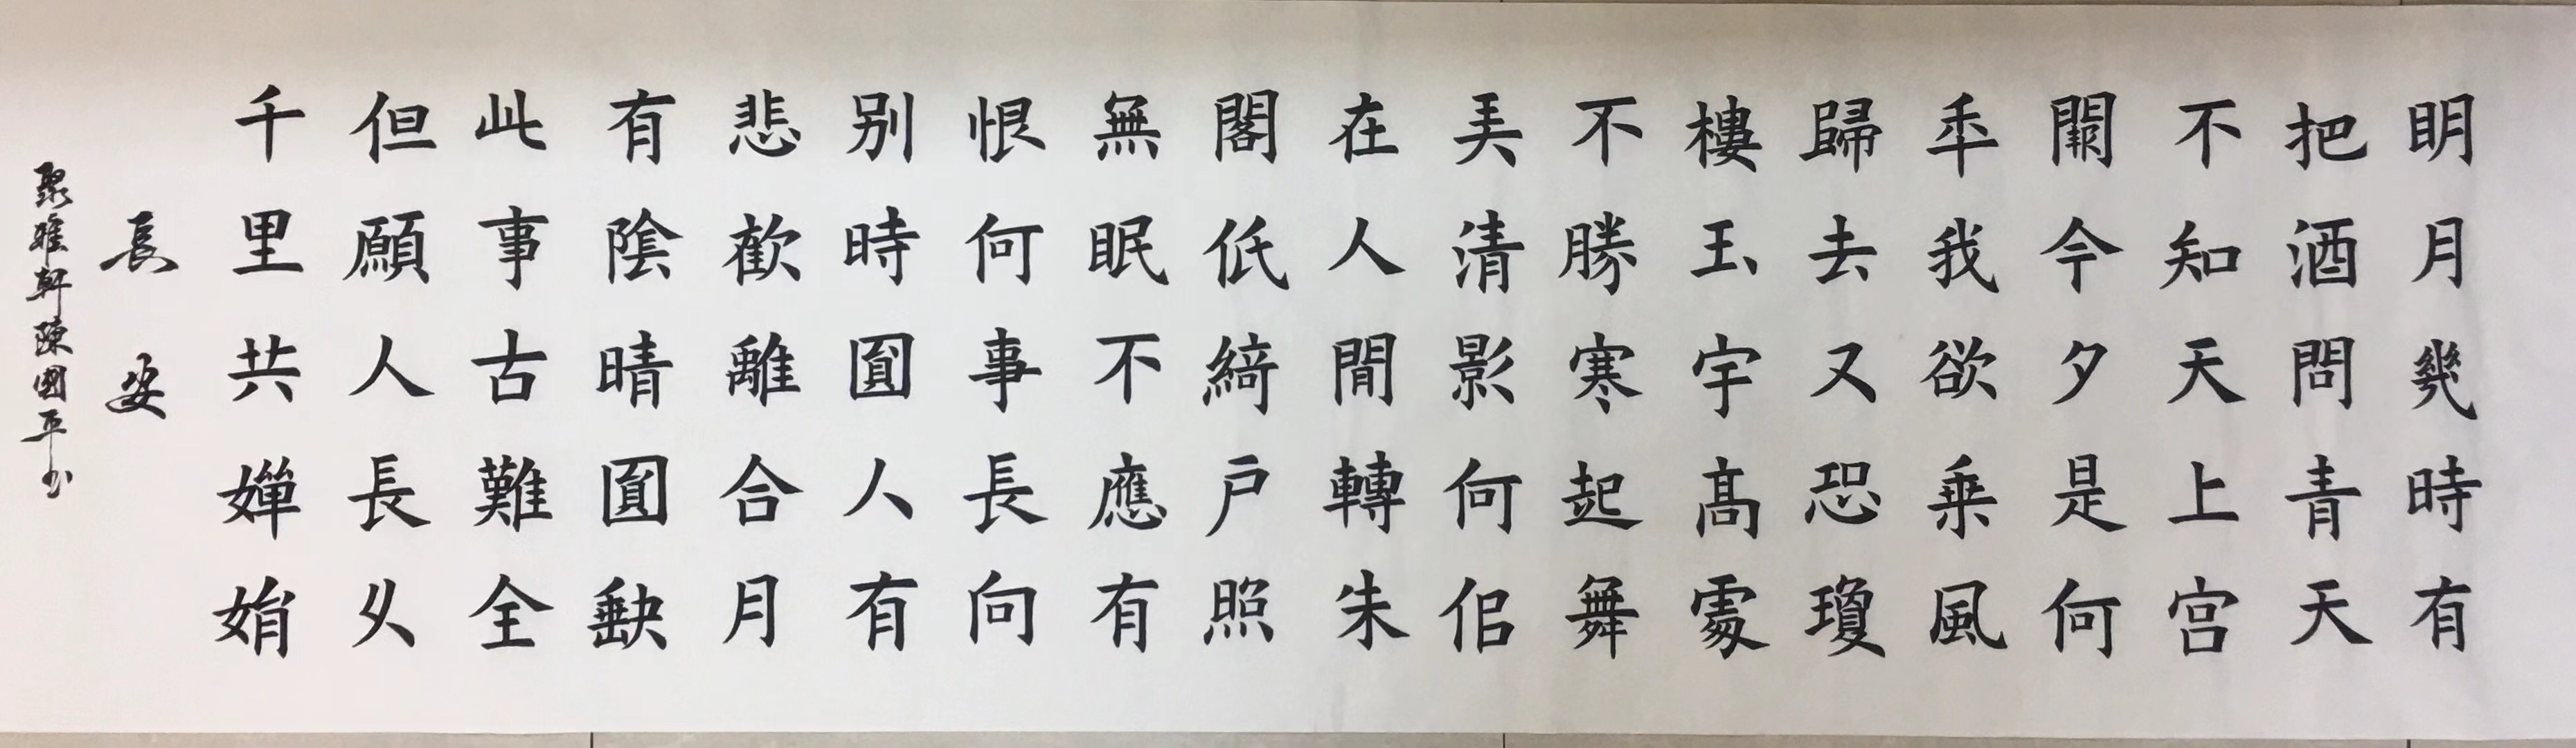 眀月幾時有
把酒問青天
不知天上宫
闕今夕是何
年我欲乗風
歸去又恐瓊
樓玉宇髙處
不勝寒起舞
弄清影何佀
在人閒轉朱
閣低綺户照
無眠不應有
恨何事長向
别時圓人有
悲歡離合月
有陰晴圓缺
此事古難全
但願人長久
千里共嬋娟
長安
聚雅軒陳國平书